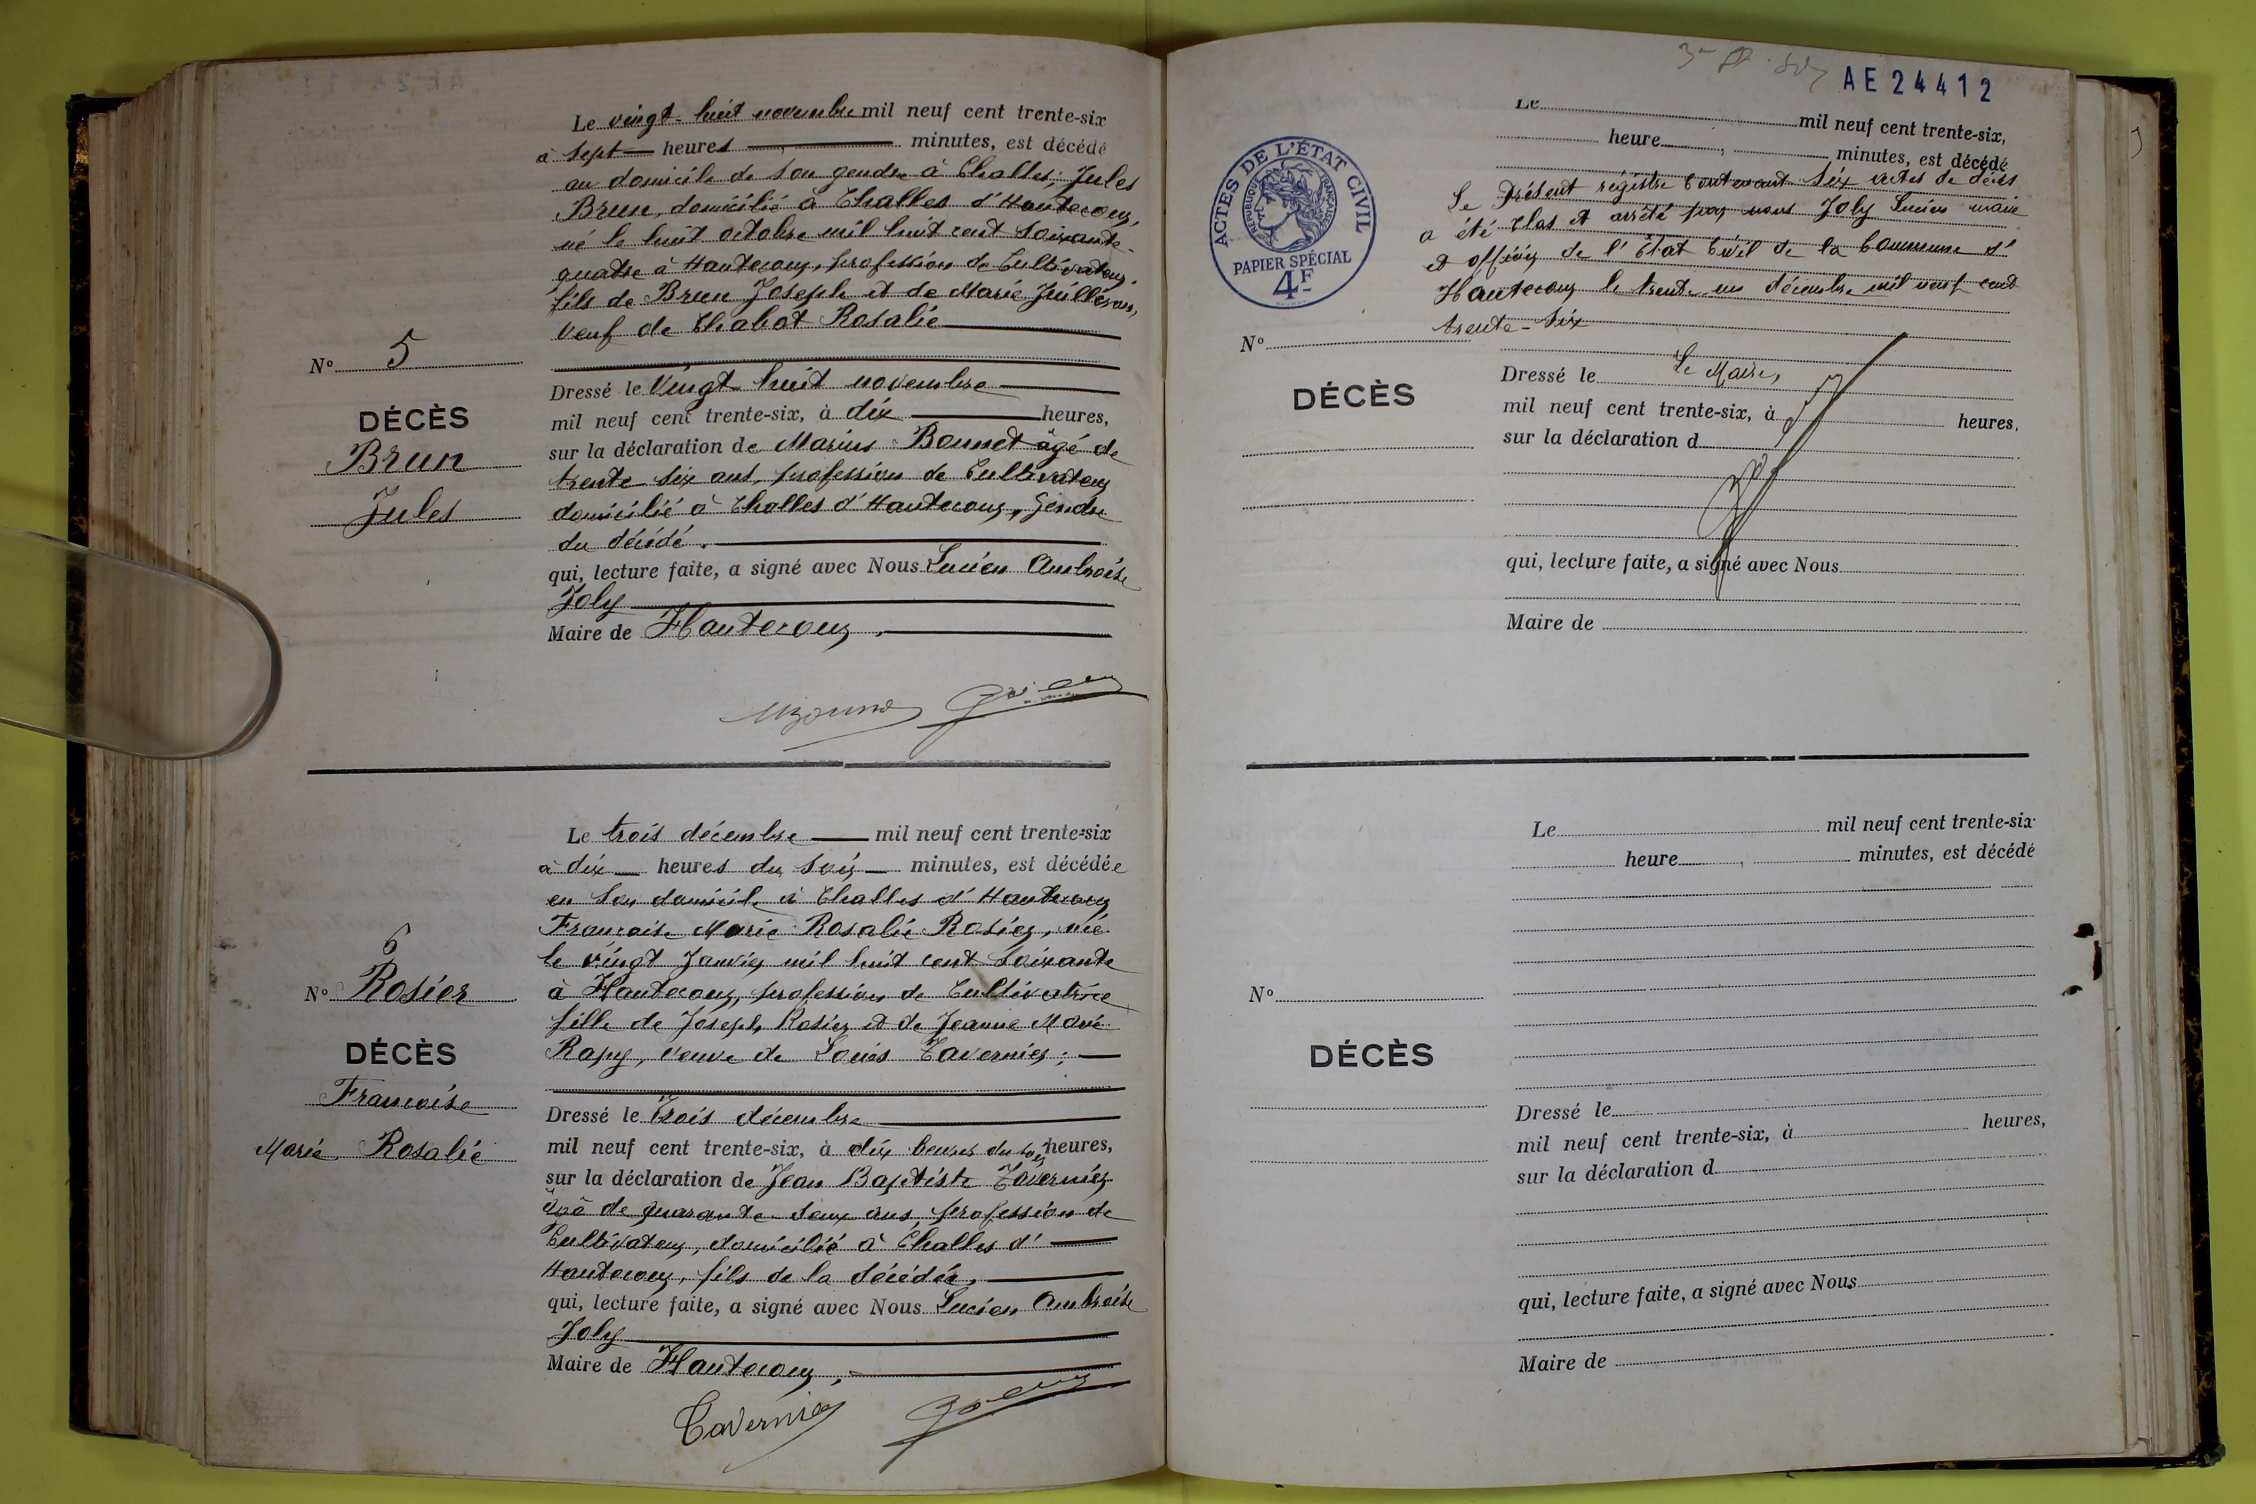 Le vingt-huit novembre mil neuf cent trente-six
à sept heures minutes, est décédé
au domicile de son gendre à Challes, Jules
Brun, domicilié à Challes d'Hautecour,
né le huit octobre mil huit cent soixante-
quatre à Hautecour, profession de Cultivateur,
fils de Brun Joseph et de Marie Juilleron,
veuf de Chabot Rosalie
N° 5
DÉCÈS
Brun
Jules
Dressé le Vingt huit novembre
mil neuf cent trente-six, à dix heures,
sur la déclaration de Marius Bonnet âgé de
trente six ans, profession de Cultivateur
domicilié à Challes d'Hautecour, gendre
du décédé.
qui, lecture faite, a signé avec Nous Lucien Ambroise
Joly
Maire de Hautecour,
Le trois décembre mil neuf cent trente-six
à dix heures du soir minutes, est décédée
en son domicile à Challes d'Hautecour
Françoise Marie Rosalie Rosier, née
le vingt Janvier mil huit cent soixante
à Hautecour, profession de Cultivatrice
fille de Joseph Rosier et de Jeanne Marie
Rapy, veuve de Louis Tavernier;
N° 6
Rosier
DÉCÈS
Francoise
Marie Rosalie
Dressé le Trois décembre
mil neuf cent trente-six, à dix heures du soir heures,
sur la déclaration de Jean Baptiste Tavernier
âgé de quarante-deux ans, profession de
Cultivateur, domicilié à Challes d'
Hautecour, fils de la décédée,
qui, lecture faite, a signé avec Nous Lucien Ambroise
Joly
Maire de Hautecour,
Tavernier
AE 24412
ACTES DE L'ÉTAT CIVIL
RÉPUBLIQUE FRANÇAISE
PAPIER SPÉCIAL
4F
Le mil neuf cent trente-six,
heure , minutes, est décédé
Le présent régistre contenant six actes de décès
a été clos et arrêté par nous Joly Lucien maire
et officier de l'État Civil de la Commune d'
Hautecour le trente-un décembre mil neuf cent
trente-six
N°
DÉCÈS
Dressé le Le Maire,
mil neuf cent trente-six, à heures,
sur la déclaration d
qui, lecture faite, a signé avec Nous
Maire de
Le mil neuf cent trente-six
heure , minutes, est décédé
N°
DÉCÈS
Dressé le
mil neuf cent trente-six, à heures,
sur la déclaration d
qui, lecture faite, a signé avec Nous
Maire de